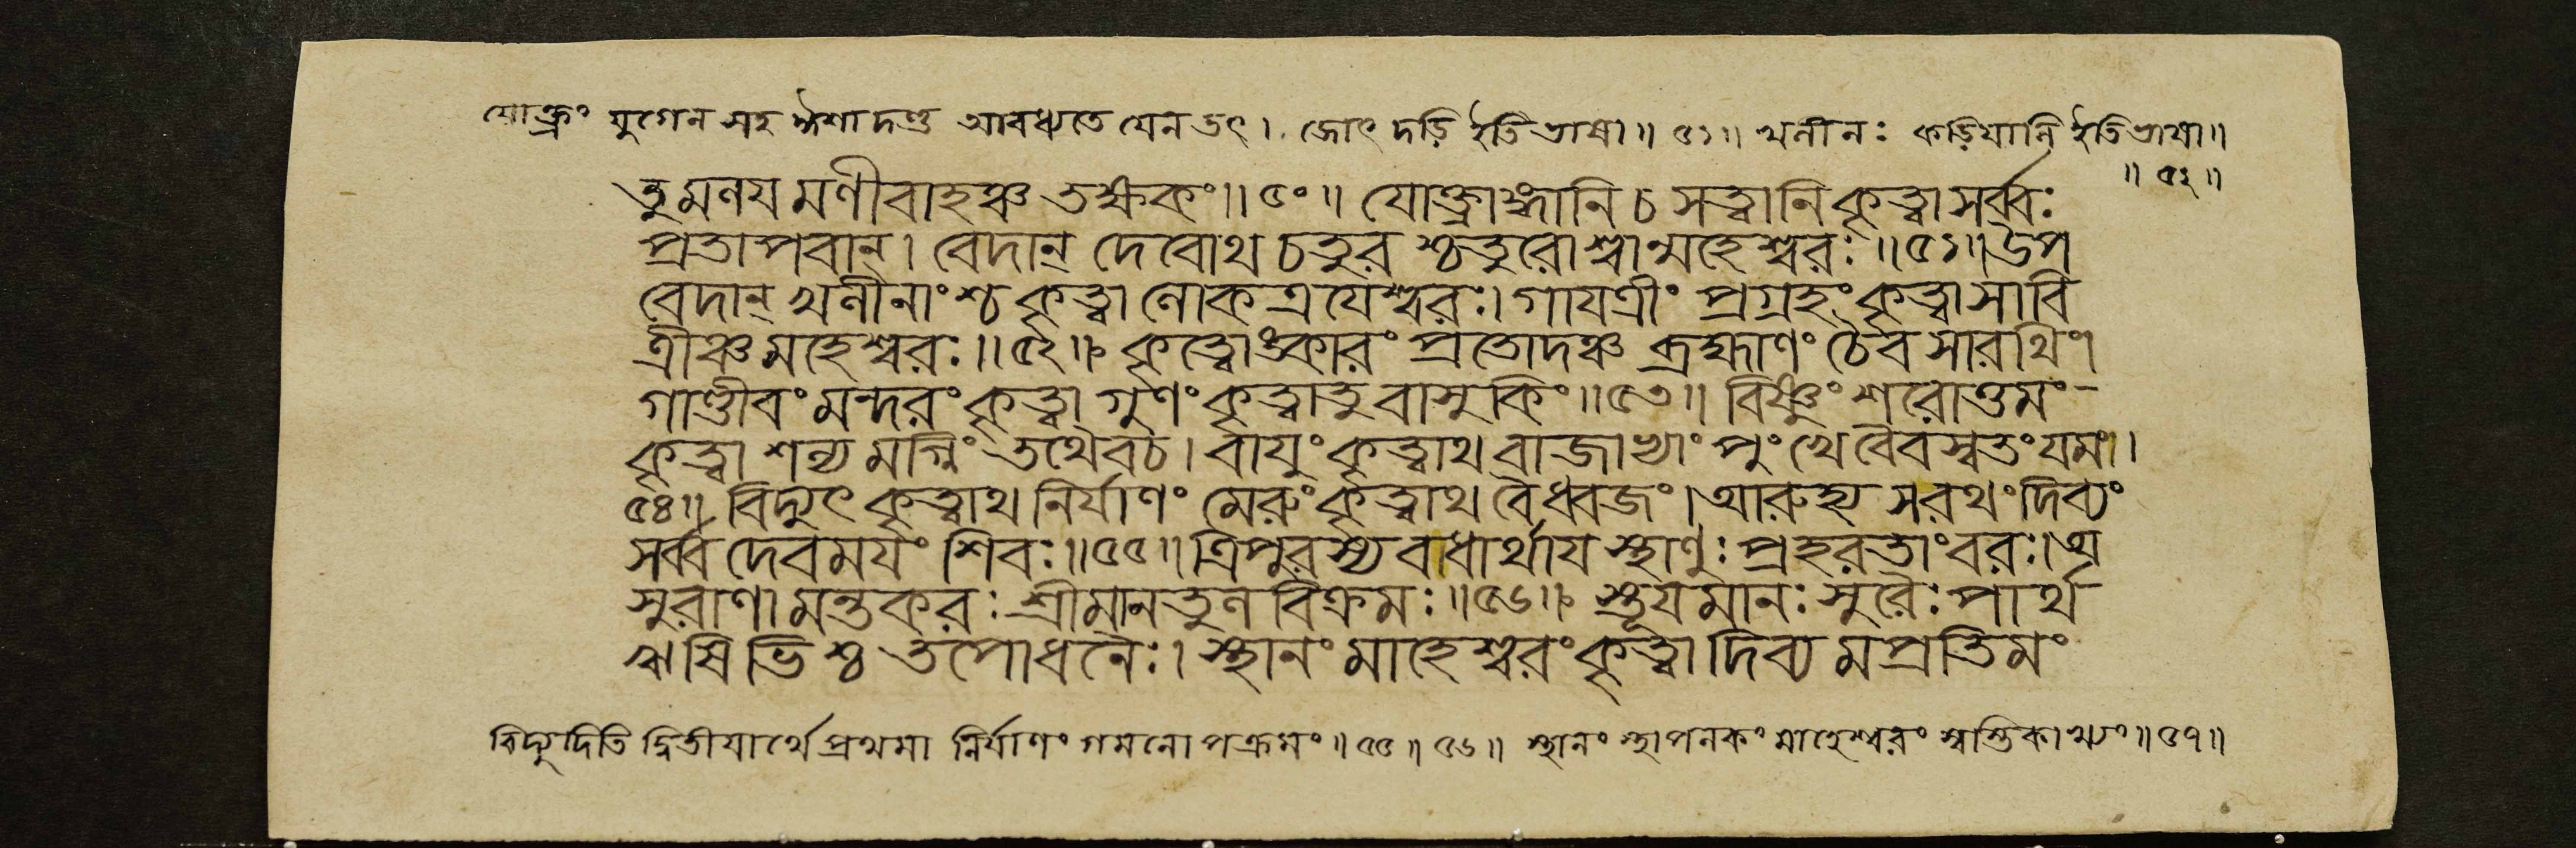 যোক্ত্রং যুগেন সহ ঈশাদণ্ড আবধ্যতে যেন তৎ। জোৎ দড়ি ইতি ভাষা॥ ৫১॥ খনীনঃ কড়িয়ানি ইতি ভাষা॥
॥ ৫২॥
তুমনযমণীবাহঞ্চ তক্ষকং॥ ৫০॥ যোক্ত্রাঙ্গানি চ সত্বানি কৃত্বা সর্ব্বঃ
প্রতাপবান্। বেদান্ দেবোথ চতুর শ্চতুরোশ্বান্মহেশ্বরঃ॥ ৫১॥ উপ
বেদান্ খনীনাংশ্চ কৃত্বা লোকত্রযেশ্বরঃ। গাযত্রীং প্রগ্রহং কৃত্বা সাবি
ত্রীঞ্চ মহেশ্বরঃ॥ ৫২॥ কৃত্বোঙ্কারং প্রতোদঞ্চ ব্রহ্মাণং চৈব সারথিং।
গাণ্ডীবং মন্দরং কৃত্বা গুণং কৃত্বা তু বাসুকিং॥ ৫৩॥ বিষ্ণুং শরোত্তমং
কৃত্বা শল্য মগ্নিং তথৈবচ। বাযুং কৃত্বাথ বাজাখ্যাং পুংখে বৈবস্বতং যমং।
৫৪॥ বিদ্যুৎ কৃত্বাথ নির্যাণং মেরুং কৃত্বাথ বৈ ধ্বজং। আরুহ্য স রথং দিব্যং
সর্ব্বদেবমযং শিবঃ॥ ৫৫॥ ত্রিপুরস্য বধার্থায স্থাণুঃ প্রহরতাং বরঃ। অ
সুরাণামন্তকরঃ শ্রীমানতুল বিক্রমঃ॥ ৫৬॥ স্তূযমানঃ সুরৈঃ পার্থ
ঋষিভিশ্চ তপোধনৈঃ। স্থানং মাহেশ্বরং কৃত্বা দিব্য মপ্রতিমং
বিদ্যুদিতি দ্বিতীযার্থে প্রথমা নির্যাণং গমনোপক্রমং॥ ৫৫॥ ৫৬॥ স্থানং স্থাপনকং মাহেশ্বরং স্বস্তিকাখ্যং॥ ৫৭॥